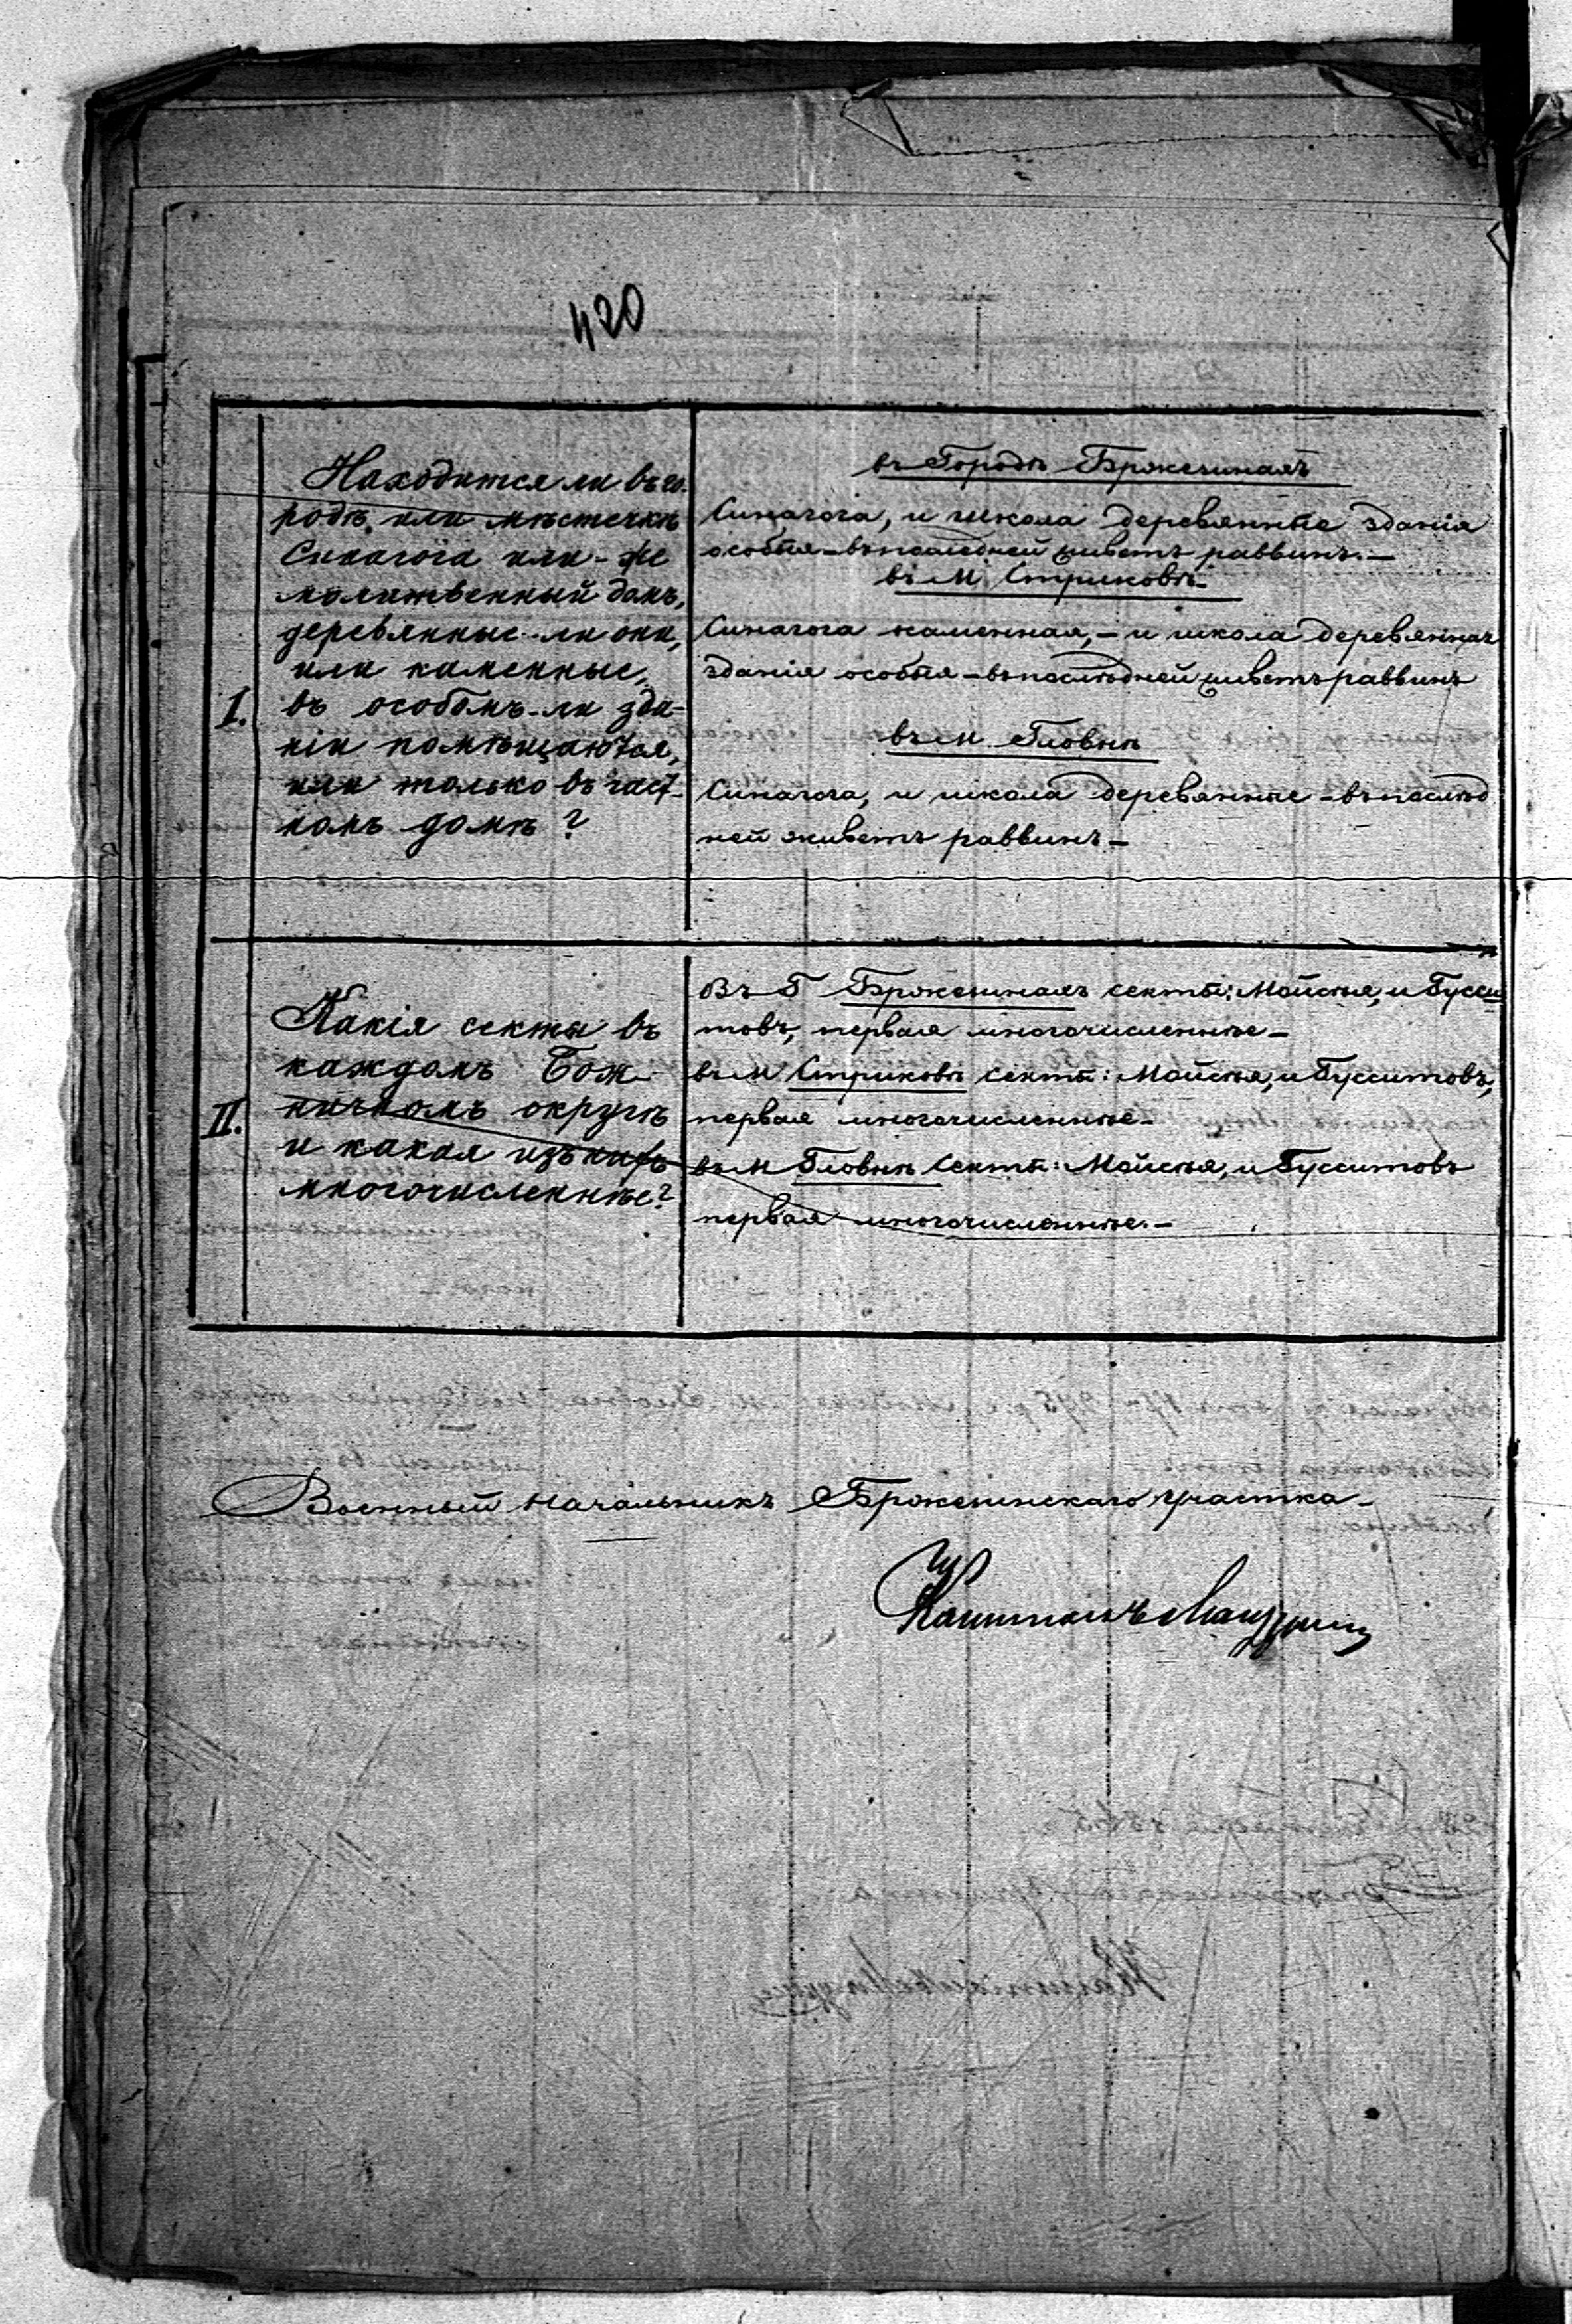 420
I.
Находится ли въ го-
родѣ, или мѣстечкѣ
Синагога или-же
молитвенный домъ,
деревянные-ли они,
или каменные,
въ особомъ-ли зда-
нiи помѣщаются,
или только въ част-
номъ домѣ?
въ Городѣ Брожезинахъ
Синагога, и школа деревянные зданiя
особыя - въ последней живетъ раввинъ. -
въ М. Стриковѣ
Синагога каменная, - и школа деревянная
зданiя особыя - въ послѣдней живетъ раввинъ
въ м. Гловнѣ
Синагога, и школа деревянные - въ послѣд
ней живетъ раввинъ -
II.
Какiя секты въ
каждомъ Бож-
ничномъ округѣ
и какая изъ нихъ
многочисленнѣе?
Въ Г Брожезинахъ секты: Мойсѣя, и Гусси
товъ, первая многочисленнѣе -
въ М Стриковѣ секты: Мойсѣя, и Гусситовъ,
первая многочисленнѣе -
въ М Гловнѣ секты: Мойсѣя, и Гусситовъ
первая многочисленнѣе. -
Военный Начальникъ Брожезинскаго участка -
Капитанъ